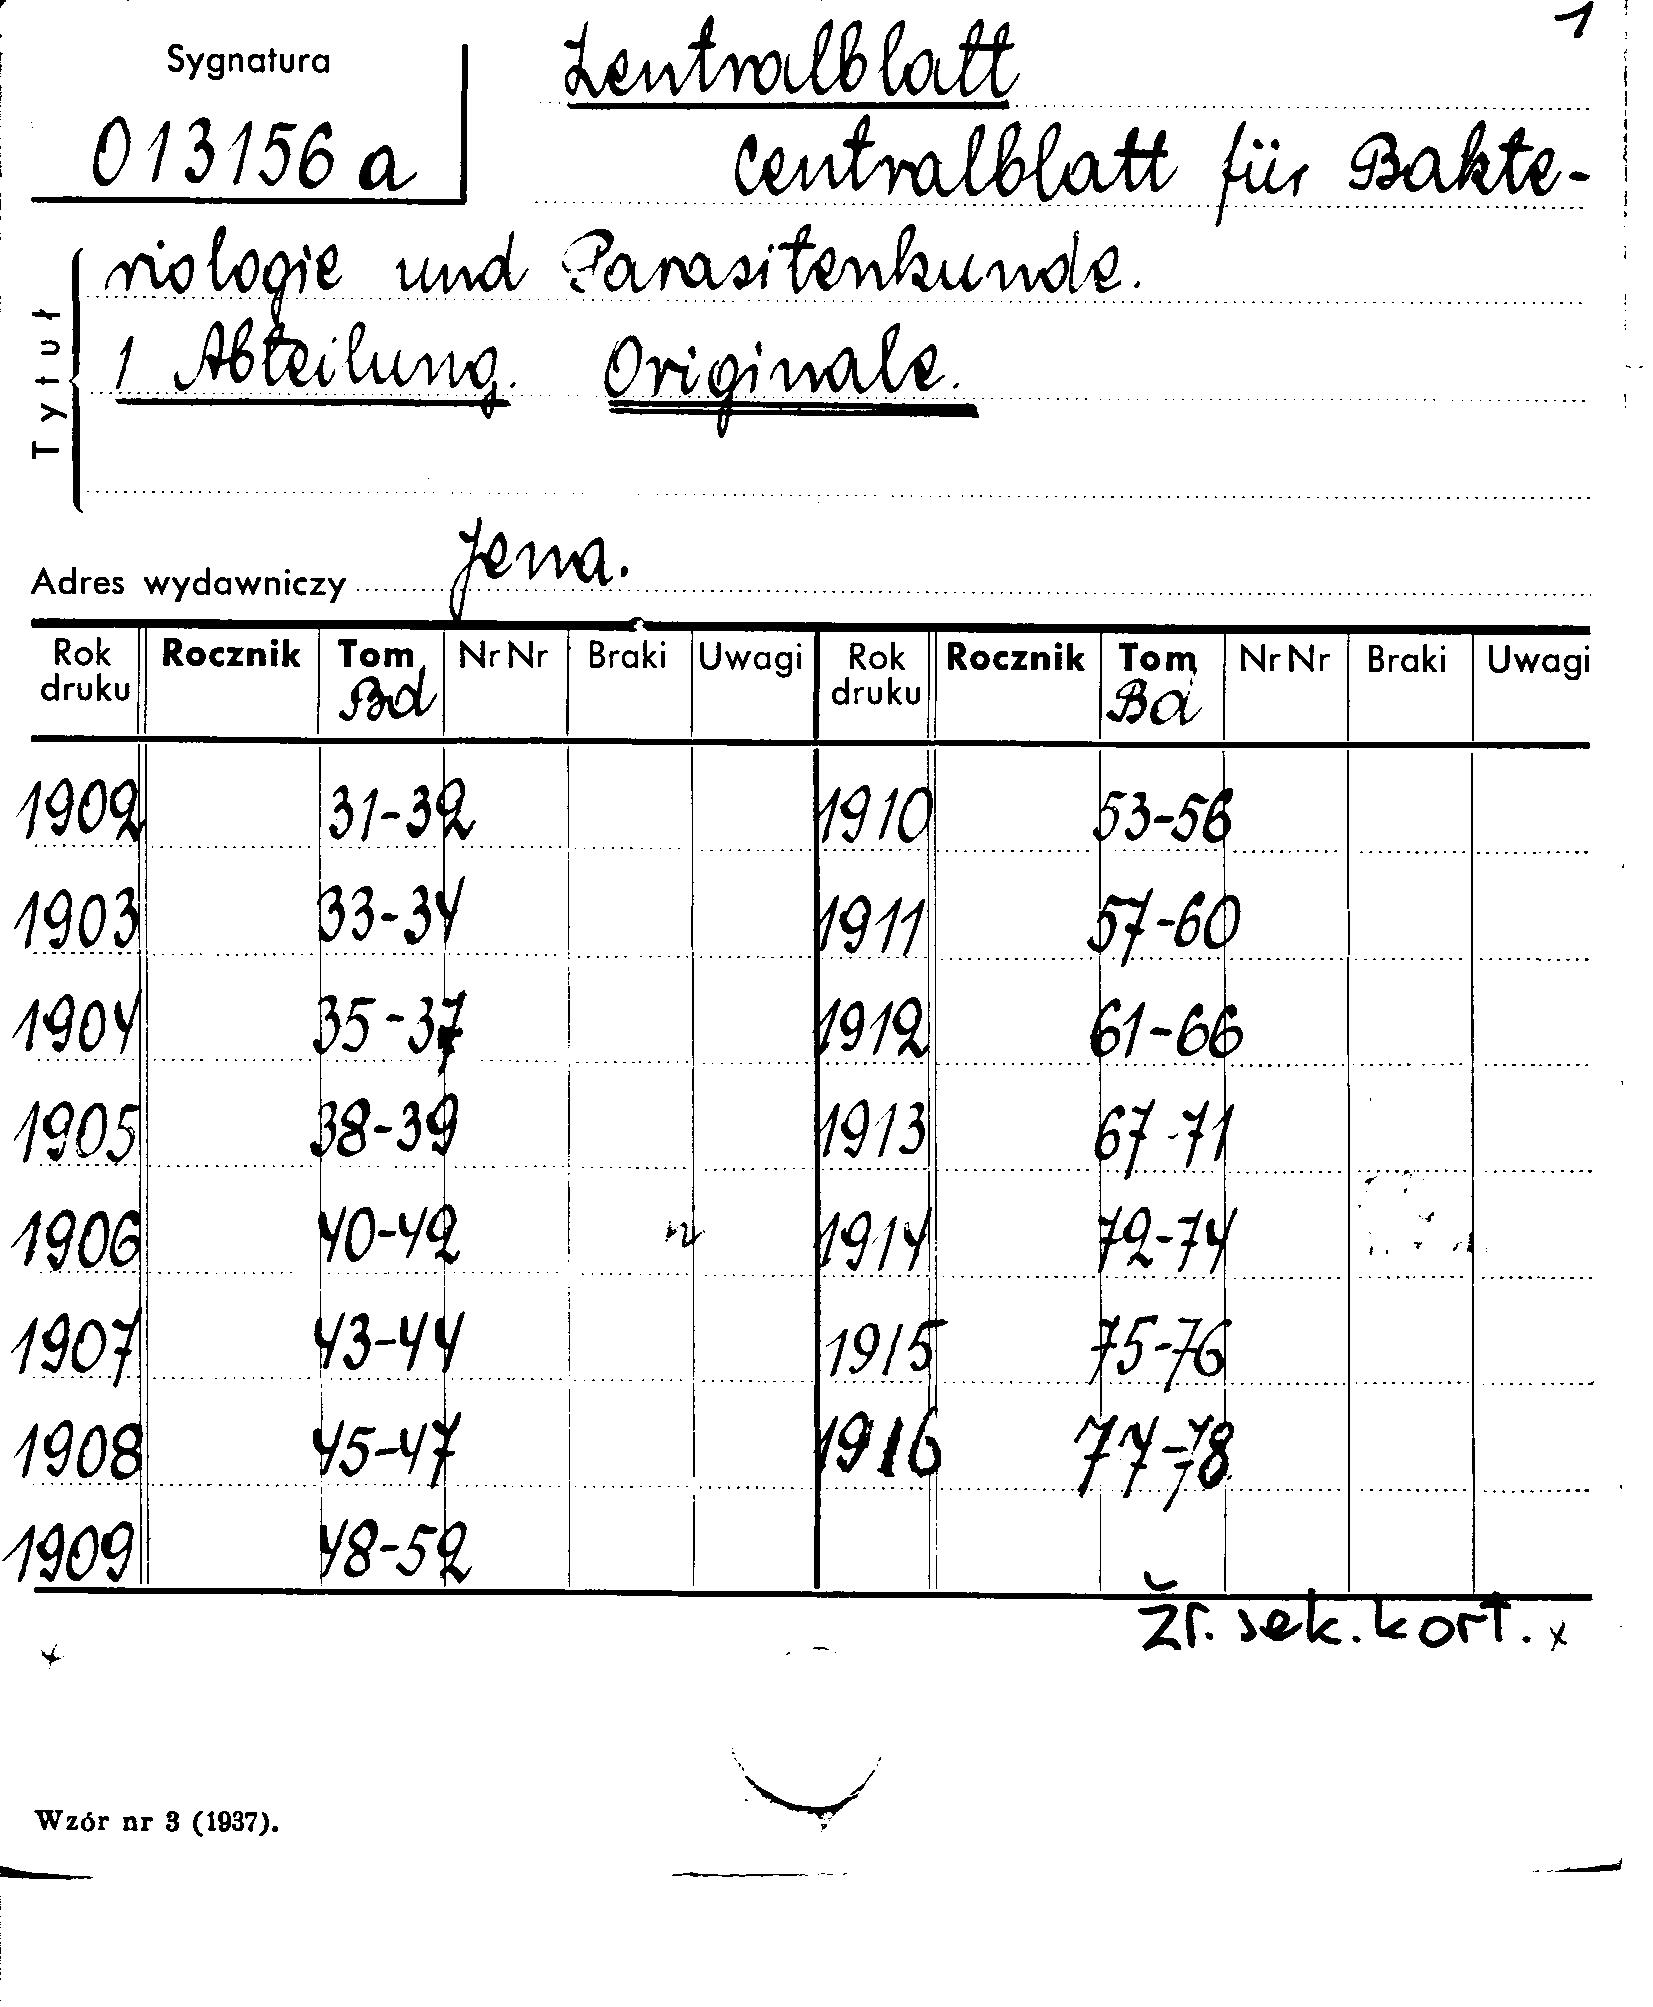 1
Sygnatura
013156 a
Zentralblatt
Centralblatt für Bakte-
riologie und Parasitenkunde.
1 Abteilung. Originale.
Tytuł
Adres wydawniczy Jena.
Rok druku Rocznik Tom Bd Nr Nr Braki Uwagi Rok druku Rocznik Tom Bd Nr Nr Braki Uwagi
1902 31-32 1910 53-56
1903 33-34 1911 57-60
1904 35-37 1912 61-66
1905 38-39 1913 67-71
1906 40-42 1914 72-74
1907 43-44 1915 75-76
1908 45-47 1916 77-78
1909 48-52
Zr. sek. kort. x
Wzór nr 3 (1937).